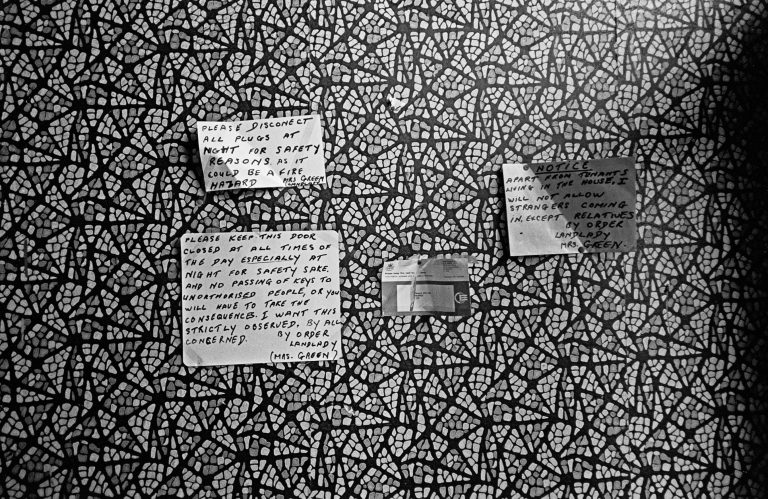 PLEASE DISCONECT
ALL PLUGS AT
NIGHT FOR SAFETY
REASONS. AS IT
COULD BE A FIRE
HAZARD MRS GREEN
(LANDLADY)
PLEASE KEEP THIS DOOR
CLOSED AT ALL TIMES OF
THE DAY ESPECIALLY AT
NIGHT FOR SAFETY SAKE.
AND NO PASSING OF KEYS TO
UNORTHORISED PEOPLE, OR YOU
WILL HAVE TO TAKE THE
CONSEQUENCES. I WANT THIS
STRICTLY OBSERVED. BY ALL
CONCERNED. BY ORDER
LANDLADY
(MRS. GREEN)
NOTICE
APART FROM TENANTS
LIVING IN THE HOUSE, I
WILL NOT ALLOW
STRANGERS COMING
IN, EXCEPT RELATIVES
BY ORDER
LANDLADY
MRS. GREEN.